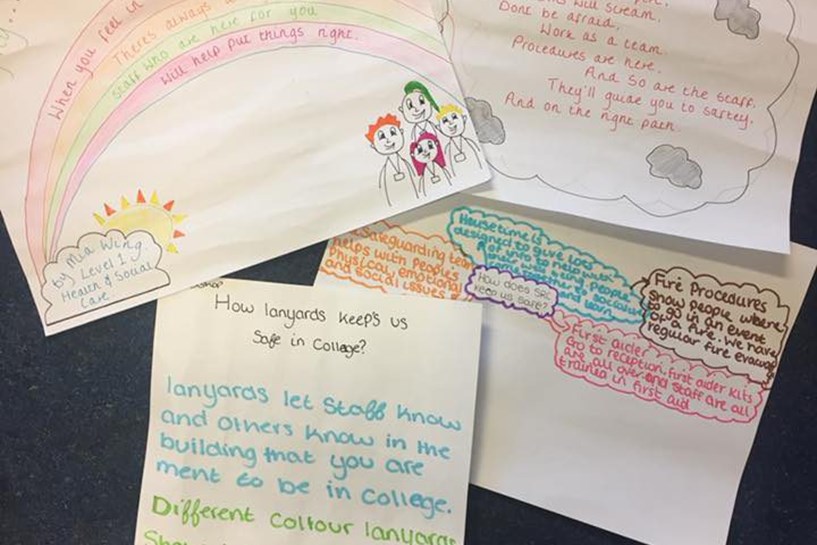 When you feel in
Theres always
staff who are here for you
will help put things right.
by Mia Wing.
Level 1
Health & Social
Care.
will scream.
Dont be afraid,
Work as a team.
Procedures are here,
And so are the staff.
They'll guide you to saftey,
And on the right path.
Safeguarding team
helps with people's
Physical, emotional
and social issues
Housetime is
designed to give
for info to help with
people
and learn
How does SRC
keep us safe?
Fire Procedures
Show people where
to go in an event
of a fire. We have
regular fire
First aider
Go to reception. First aider kits
are all over and staff are all
trained in first aid
How lanyards keep's us
Safe in College?
lanyards let Staff know
and others know in the
building that you are
ment to be in college.
Different Coltour lanyards